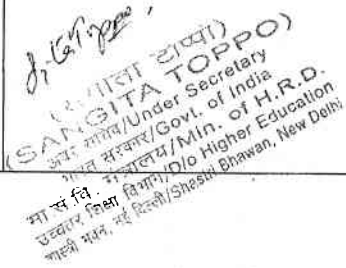 (संगीता टोप्पो)
(SANGITA TOPPO)
अवर सचिव/Under Secretary
भारत सरकार/Govt. of India
मा.सं.वि. मंत्रालय/Min. of H.R.D.
उच्चतर शिक्षा विभाग/D/o Higher Education
शास्त्री भवन, नई दिल्ली/Shastri Bhawan, New Delhi